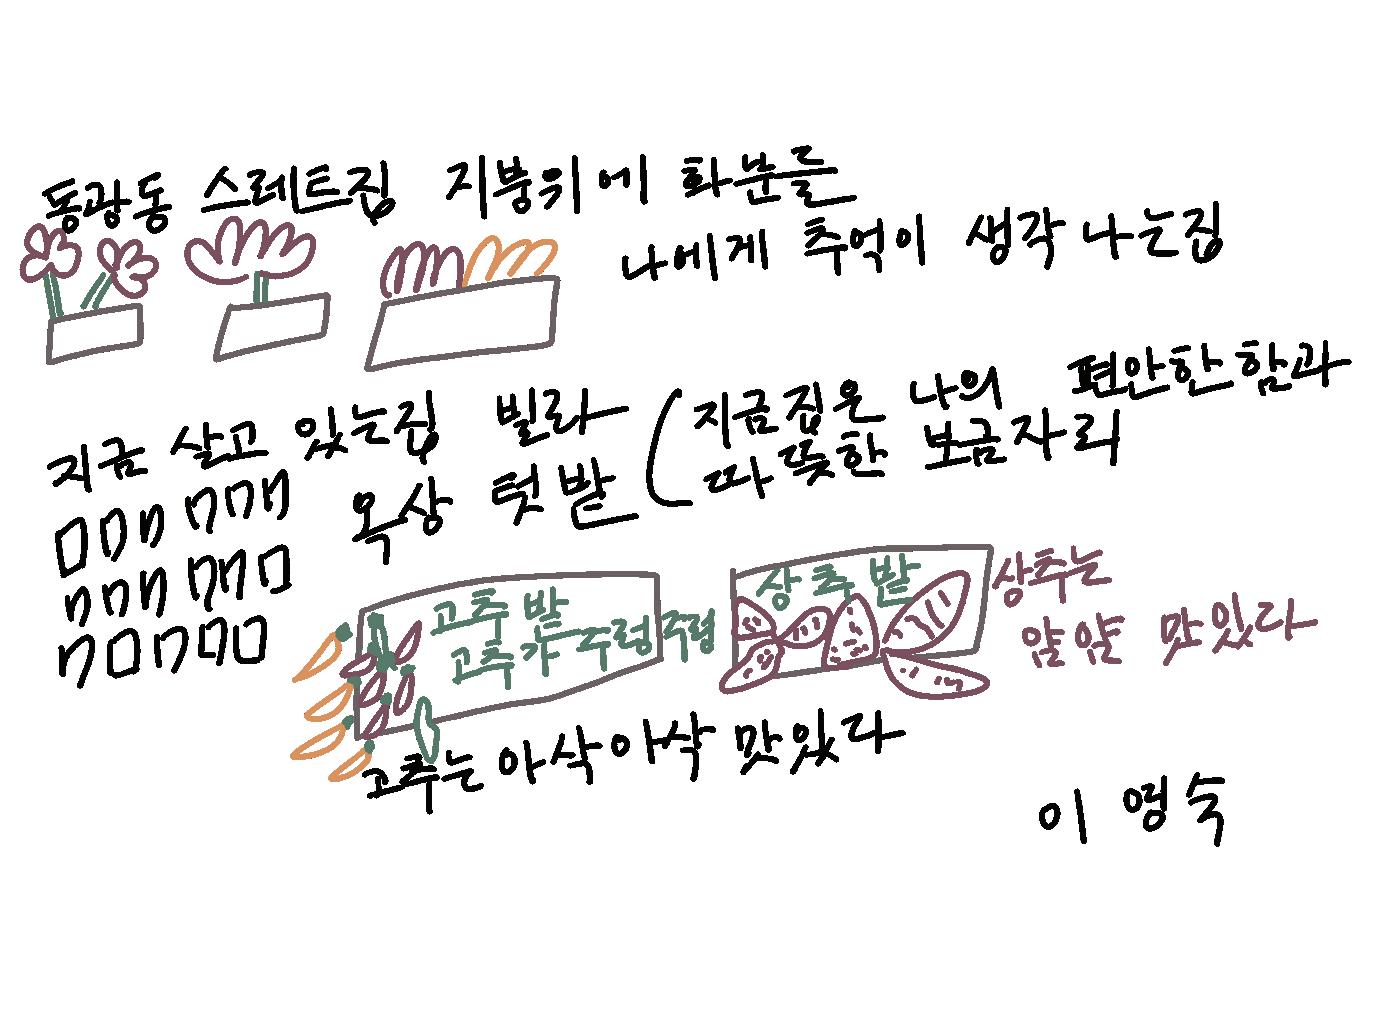 동광동 스레트집 지붕위에 화분들
나에게 추억이 생각 나는집
지금 살고 있는집 빌라
옥상 텃밭
(지금집은 나의 편안한함과
따뜻한 보금자리
고추밭
고추가 주렁주렁
상추밭
상추는
얌얌 맛있다
고추는 아삭아삭 맛있다
이영숙